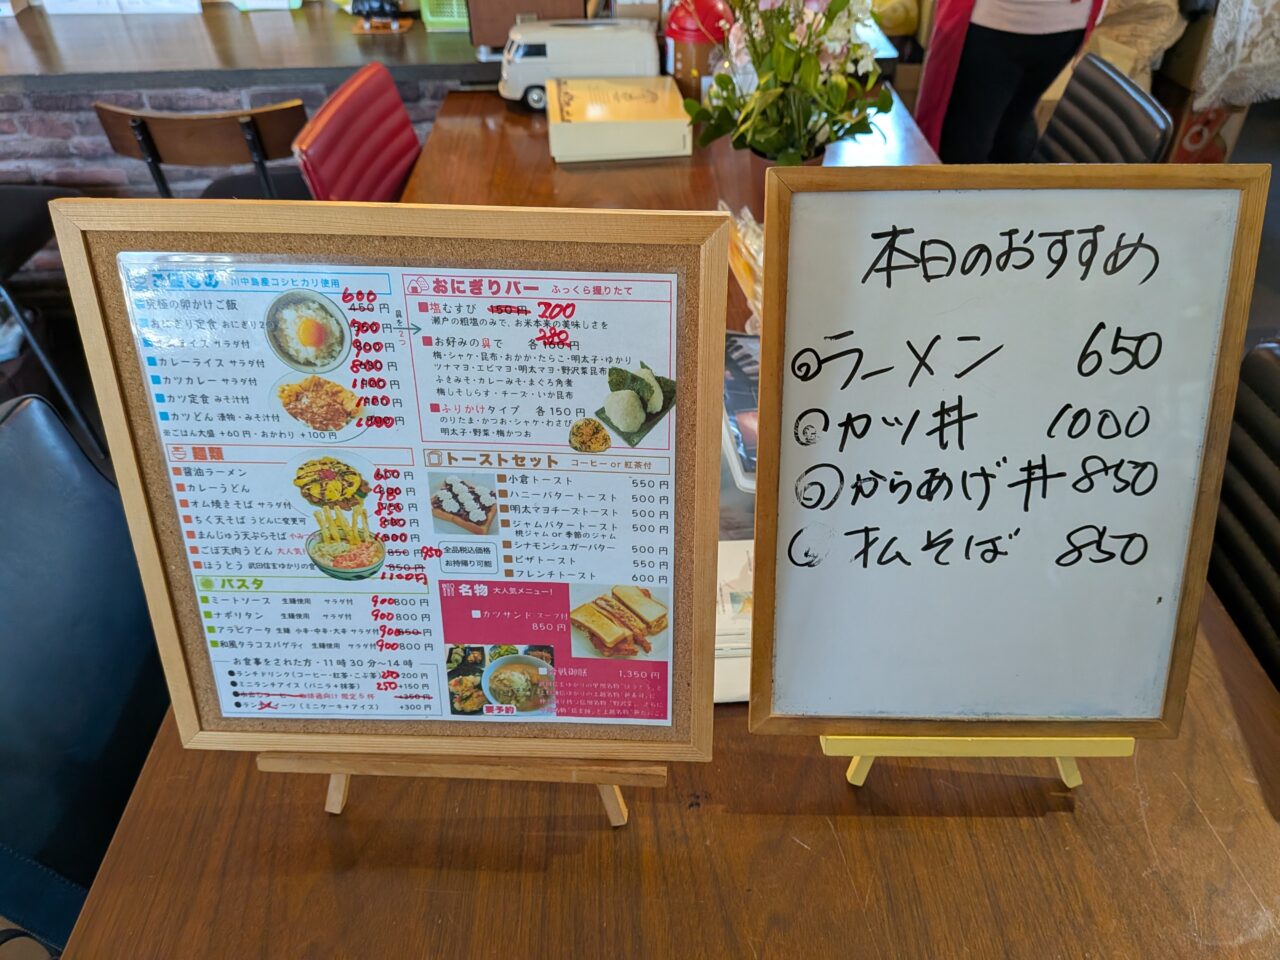 川中島産コシヒカリ使用
究極の卵かけご飯 600 450円
おにぎり定食 おにぎり2つ
サラダ付
カレーライス サラダ付
カツカレー サラダ付
カツ定食 みそ汁付
カツどん 漬物・みそ汁付
※ごはん大盛 +60円・おかわり +100円
麺類
醤油ラーメン 650円
カレーうどん
オム焼きそば サラダ付 850
ちく天そば うどんに変更可
まんじゅう天ぷらそば
ごぼ天肉うどん 大人気! 850円 950
ほうとう 武田信玄ゆかりの食 850円 1100円
パスタ
ミートソース 生麺使用 サラダ付 900 800円
ナポリタン 生麺使用 サラダ付 900 800円
アラビアータ 生麺 小辛・中辛・大辛 サラダ付 900 850円
和風タラコスパゲティ 生麺使用 サラダ付 900 800円
お食事をされた方・11時30分〜14時
●ランチドリンク(コーヒー・紅茶・こぶ茶) 200円
●ミニランチアイス(バニラ+抹茶) 250 +150円
+350円
(ミニケーキ+アイス) +300円
おにぎりバー ふっくら握りたて
塩むすび 150円 200
瀬戸の粗塩のみで、お米本来の美味しさを
お好みの具で 各
梅・シャケ・昆布・おかか・たらこ・明太子・ゆかり
ツナマヨ・エビマヨ・明太マヨ・野沢菜昆布
ふきみそ・カレーみそ・まぐろ角煮
梅しそしらす・チーズ・いか昆布
ふりかけタイプ 各150円
のりたま・かつお・シャケ・わさび
明太子・野菜・梅かつお
トーストセット コーヒーor紅茶付
小倉トースト 550円
ハニーバタートースト 500円
明太マヨチーズトースト 500円
ジャムバタートースト 500円
桃ジャムor季節のジャム
シナモンシュガーバター 500円
ピザトースト 550円
フレンチトースト 600円
全品税込価格
お持帰り可能
名物 大人気メニュー!
カツサンド スープ付
850円
合戦御膳 1,350円
要予約
本日のおすすめ
ラーメン 650
カツ丼 1000
からあげ丼 850
オムそば 850